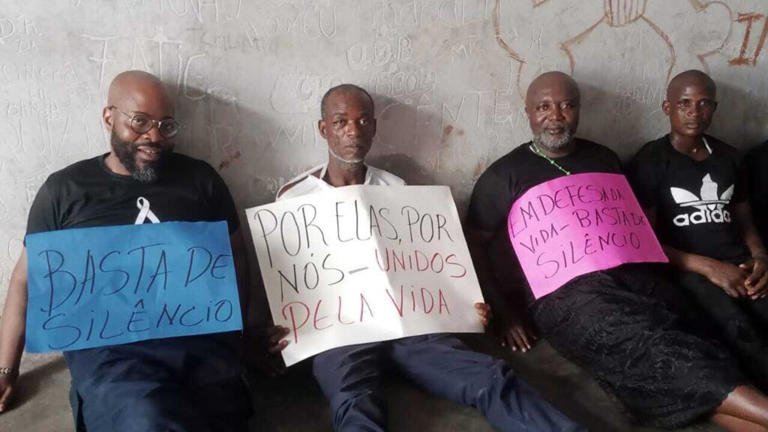 BASTA DE
SILÊNCIO
POR ELAS, POR
NÓS - UNIDOS
PELA VIDA
EM DEFESA DA
VIDA - BASTA DE
SILÊNCIO
adidas